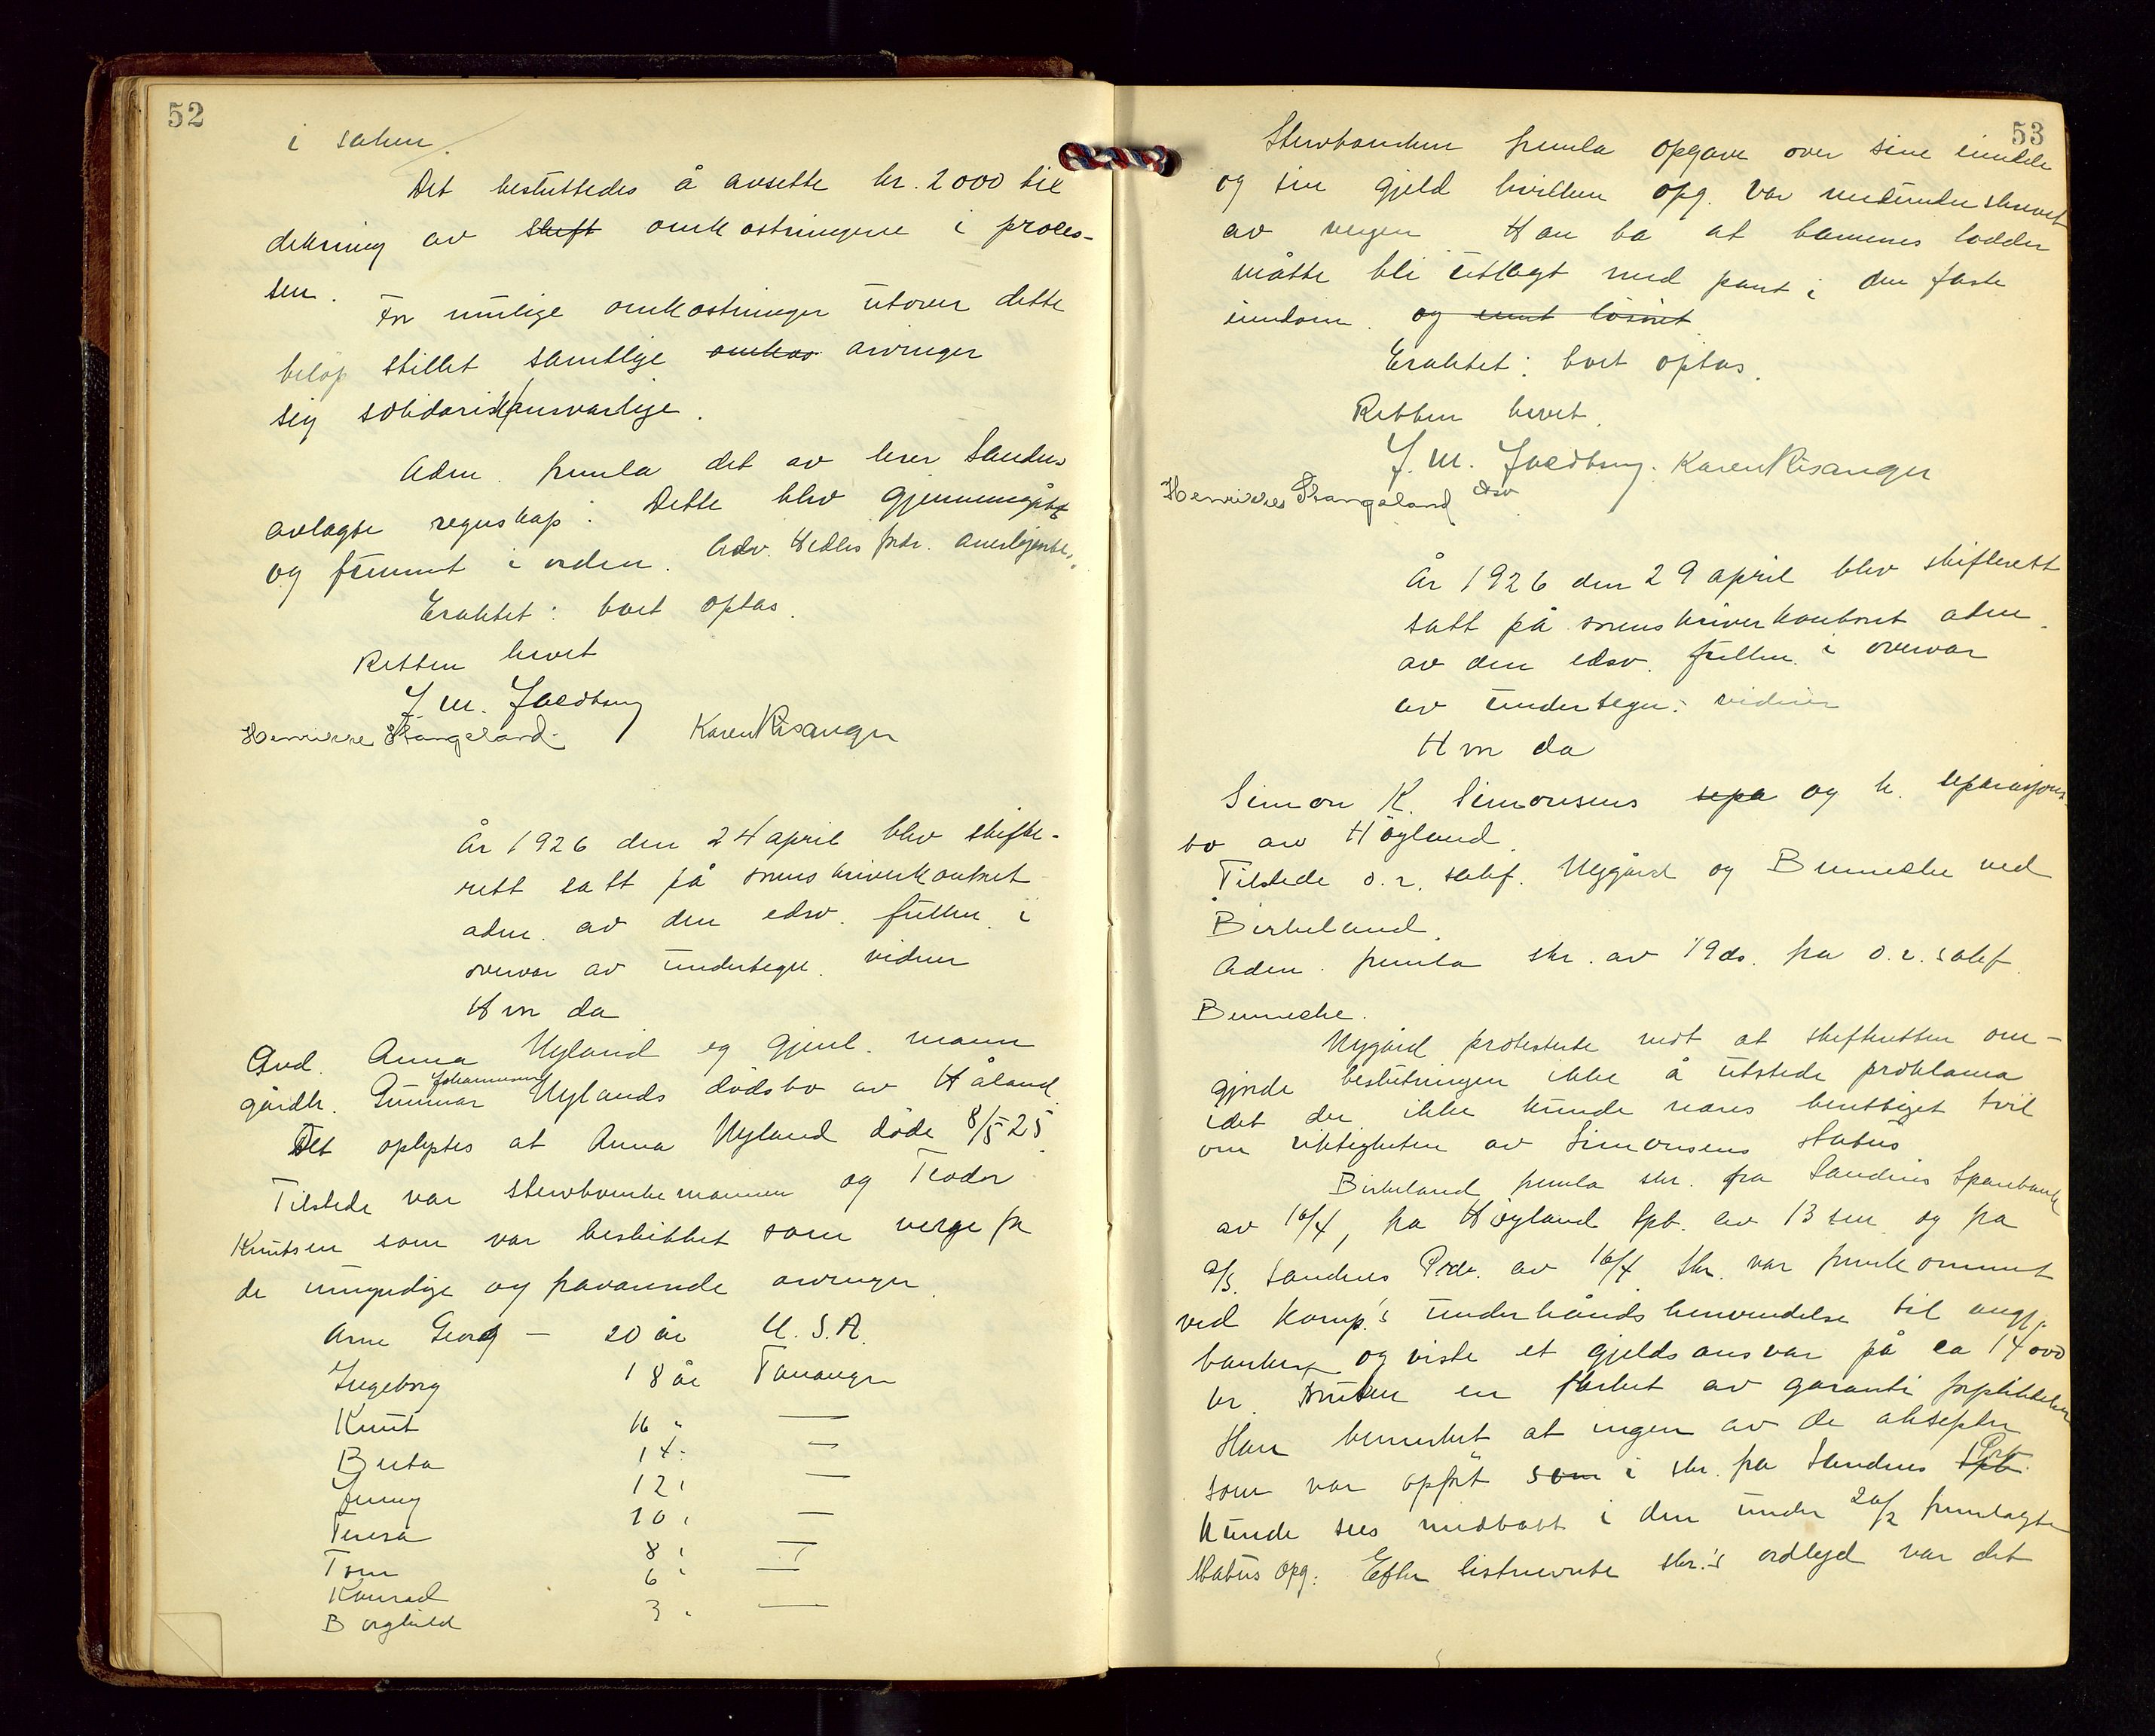 52
i saken.
Det besluttedes å avsette kr. 2000 til
dekning av skift omkostningene i proces-
sen. For mulige omkostninger utover dette
beløp stillet samtlige omkos arvinger
sig solidarisk ansvarlige.
Adm. fremla det av herr Sandnes
avlagte regnskap. Dette blev gjennemgått
og funnet i orden. Adv. Hedles fordr. anerkjentes.
Eraktet: boet optas.
Retten hevet
J. M. Jacobsen
Henrikke Stangeland. Karen Risanger
År 1926 den 24 april blev skifte-
rett satt på sorenskriverkontoret
adm. av den edsv. fullm. i
overvær av undertegn. vidner
Hvor da
Avd. Anna Nyland og gjenl. mann
gårdbr. Gunnar Johannesen Nylands dødsbo av Håland.
Det oplystes at Anna Nyland døde 8/5 25.
Tilstede var stervboenkemannen og Teodor
Knutsen som var beskikket som verge for
de umyndige og fraværende arvinger.
Arne Georg — 20 år U.S.A.
Ingeborg 18 år Tananger
Knut 16 " —
Berta 14 " —
Jenny 12 " —
Teresa 10 " —
Tom 8 " —
Konrad 6 " —
Borghild 3 " —
53
Stervboenkem. fremla opgave over sine eiendele
og sin gjeld hvilken opg. var medunderskrevet
av vergen. Han ba at barnenes lodder
måtte bli utlagt med pant i den faste
eiendom. og emt løsøret
Eraktet: boet optas.
Retten hevet.
J. M. Jacobsen. Karen Risanger
Henrikke Stangeland edsv
År 1926 den 29 april blev skifterett
satt på sorenskriverkontoret adm.
av den edsv. fullm. i overvær
av undertegn. vidner
Hvor da
Simon K. Simonsens sepa og h. separasjons-
bo av Høyland.
Tilstede o.r. sakf. Nygård og Bennecke ved
Birkeland.
Adm. fremla skr. av 19 ds. fra o.r. sakf.
Bennecke.
Nygård protesterte mot at skifteretten om-
gjorde beslutningen ikke å utstede proklama
idet der ikke kunde reises berettiget tvil
om riktigheten av Simonsens status
Birkeland fremla skr. fra Sandnes Sparebank
av 16/4, fra Høyland Spb. av 13 sm. og fra
A/S Sandnes Prb. av 16/4. Skr. var fremkommet
ved komp.'s underhånds henvendelse til angj.
banker og viste et gjeldsansvar på ca 14000
kr. foruten en flerhet av garanti forpliktelser
Han bemerket at ingen av de aksepter
som var opført som i skr. fra Sandnes Spb. Prb.
kunde sees medtatt i den under 20/2 fremlagte
status opg. Efter sistnevnte skr.'s ordlyd var det